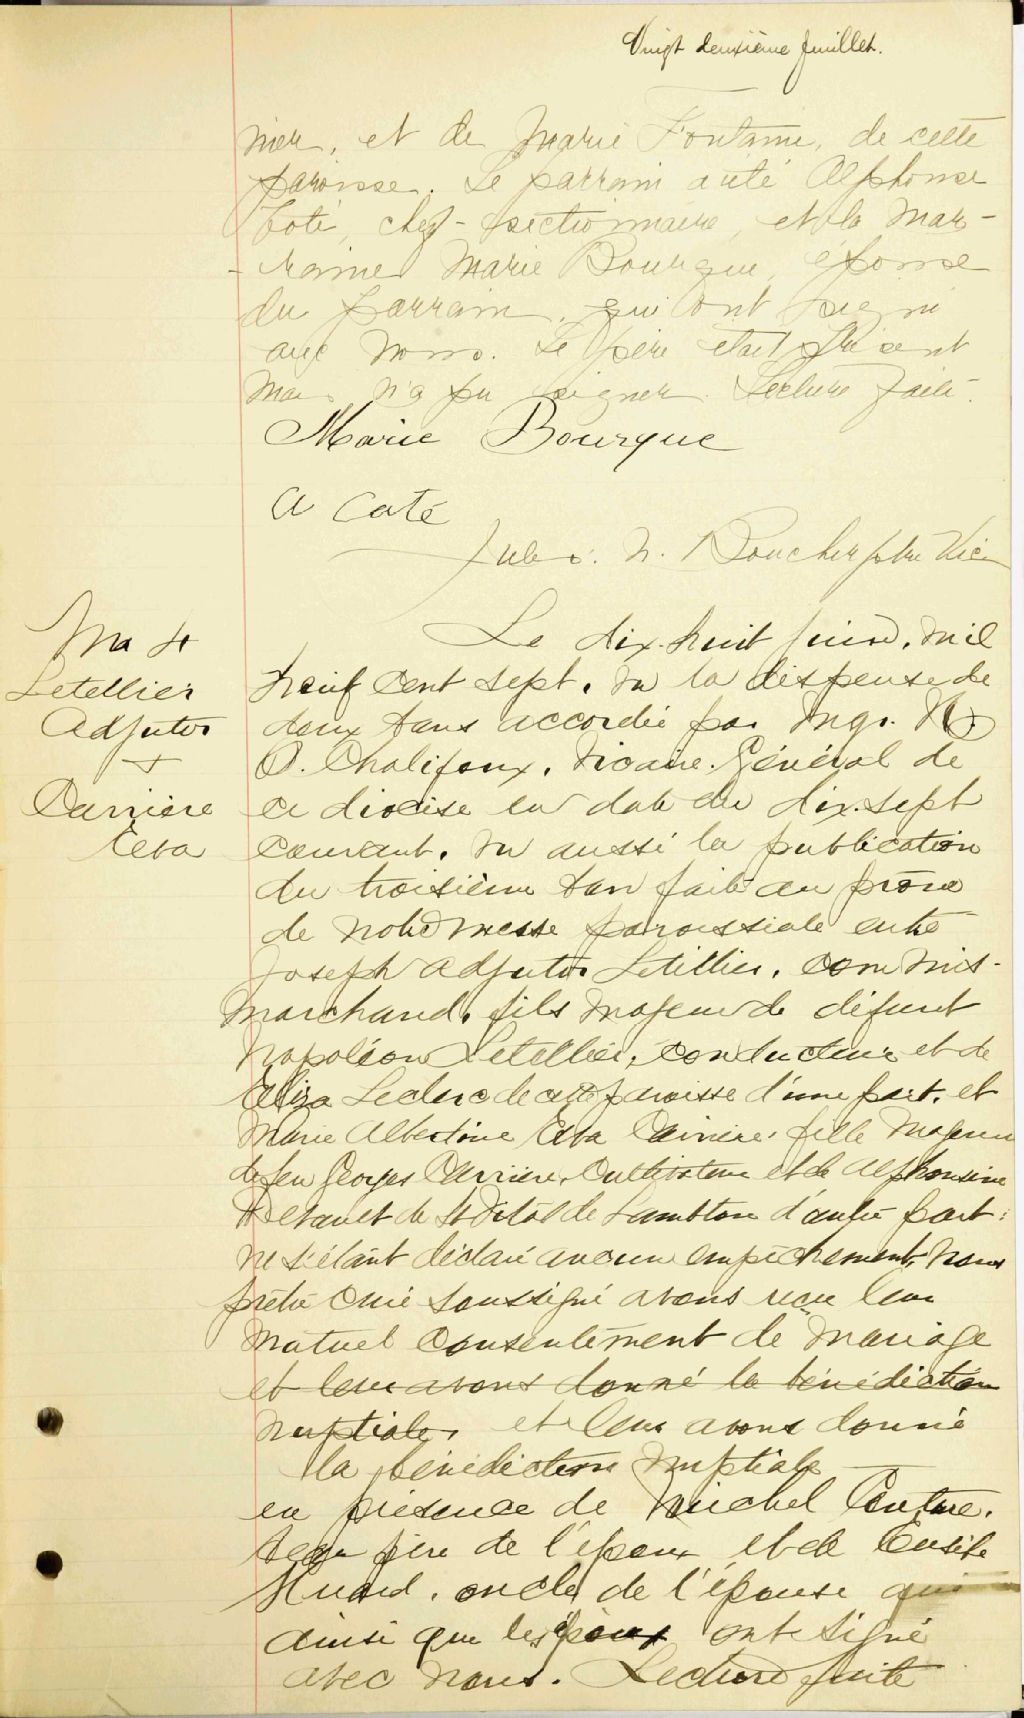 Vingt deuxième feuillet.
nier, et de Marie Fontaine, de cette
paroisse. Le parrain a été Alphonse
Coté, chef-sectionnaire, et la mar-
-raine Marie Bourque, épouse
du parrain, qui ont signé
avec nous. Le père était présent
mais n'a pu signer. Lecture faite.
Marie Bourque
A Coté
Jules. N. Boucher ptre Vic
Ma 4
Letellier
Adjutor
+
Carrière
Eva
Le dix-huit juin, mil
neuf cent sept, vu la dispense de
deux bans accordée par Mgr.
O. Chalifoux, Vicaire-Général de
ce diocèse en date du dix-sept
courant, vu aussi la publication
du troisième ban faite au prône
de notre messe paroissiale entre
Joseph Adjutor Letellier, commis-
marchand, fils majeur de défunt
Napoléon Letellier, conducteur et de
Eliza Leclerc de cette paroisse d'une part, et
Marie Albertine Eva Carrière, fille majeure
de feu Georges Carrière, cultivateur et de Alphonsine
de St Vital de Lambton d'autre part;
ne s'étant déclaré aucun empêchement, nous
prêtre curé soussigné avons reçu leur
mutuel consentement de mariage
et leur avons donné la bénédiction
nuptiale, et leur avons donné
la bénédiction nuptiale
en présence de Michel Couture,
beau père de l'époux et de
Huard, oncle de l'épouse qui
ainsi que les époux ont signé
avec nous. Lecture faite